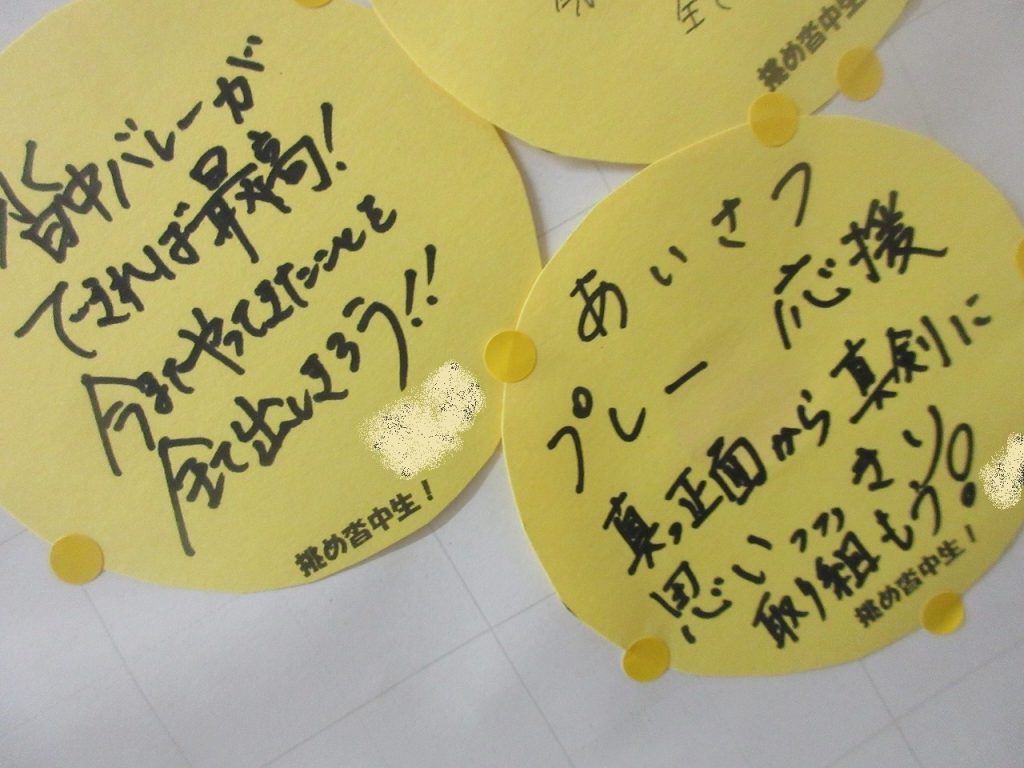 沓中バレーが
できれば最高!
今までやってきたことを
全て出しきろう!!
挑め沓中生!
生
挑め沓中生
あいさつ
プレー 応援
真っ正面から真剣に
思いっっっきり
取り組もう!
挑め沓中生!